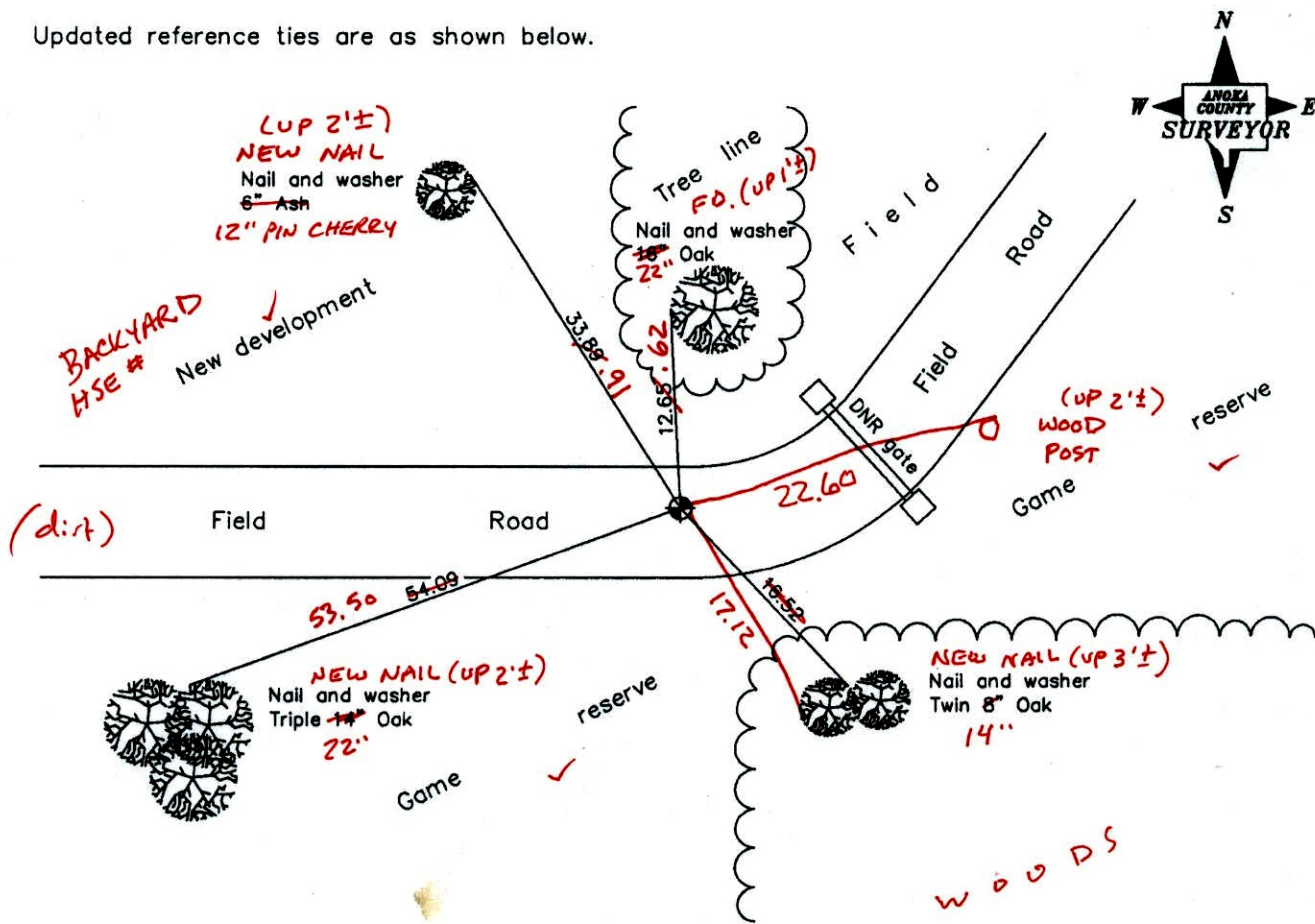 Updated reference ties are as shown below.
N
W
ANOKA
COUNTY
SURVEYOR
E
S
(UP 2'±)
NEW NAIL
Nail and washer
6" Ash
12" PIN CHERRY
Tree line
FD. (UP 1'±)
Nail and washer
16" Oak
22"
Field
Road
BACKYARD
HSE #
✓
New development
33.89
.91
12.65
.62
Field
DNR gate
(UP 2'±)
WOOD
POST
reserve
✓
Game
22.60
(dirt)
Field Road
53.50
54.09
17.12
16.52
NEW NAIL (UP 2'±)
Nail and washer
Triple 14" Oak
22"
reserve
Game
✓
NEW NAIL (UP 3'±)
Nail and washer
Twin 8" Oak
14"
WOODS